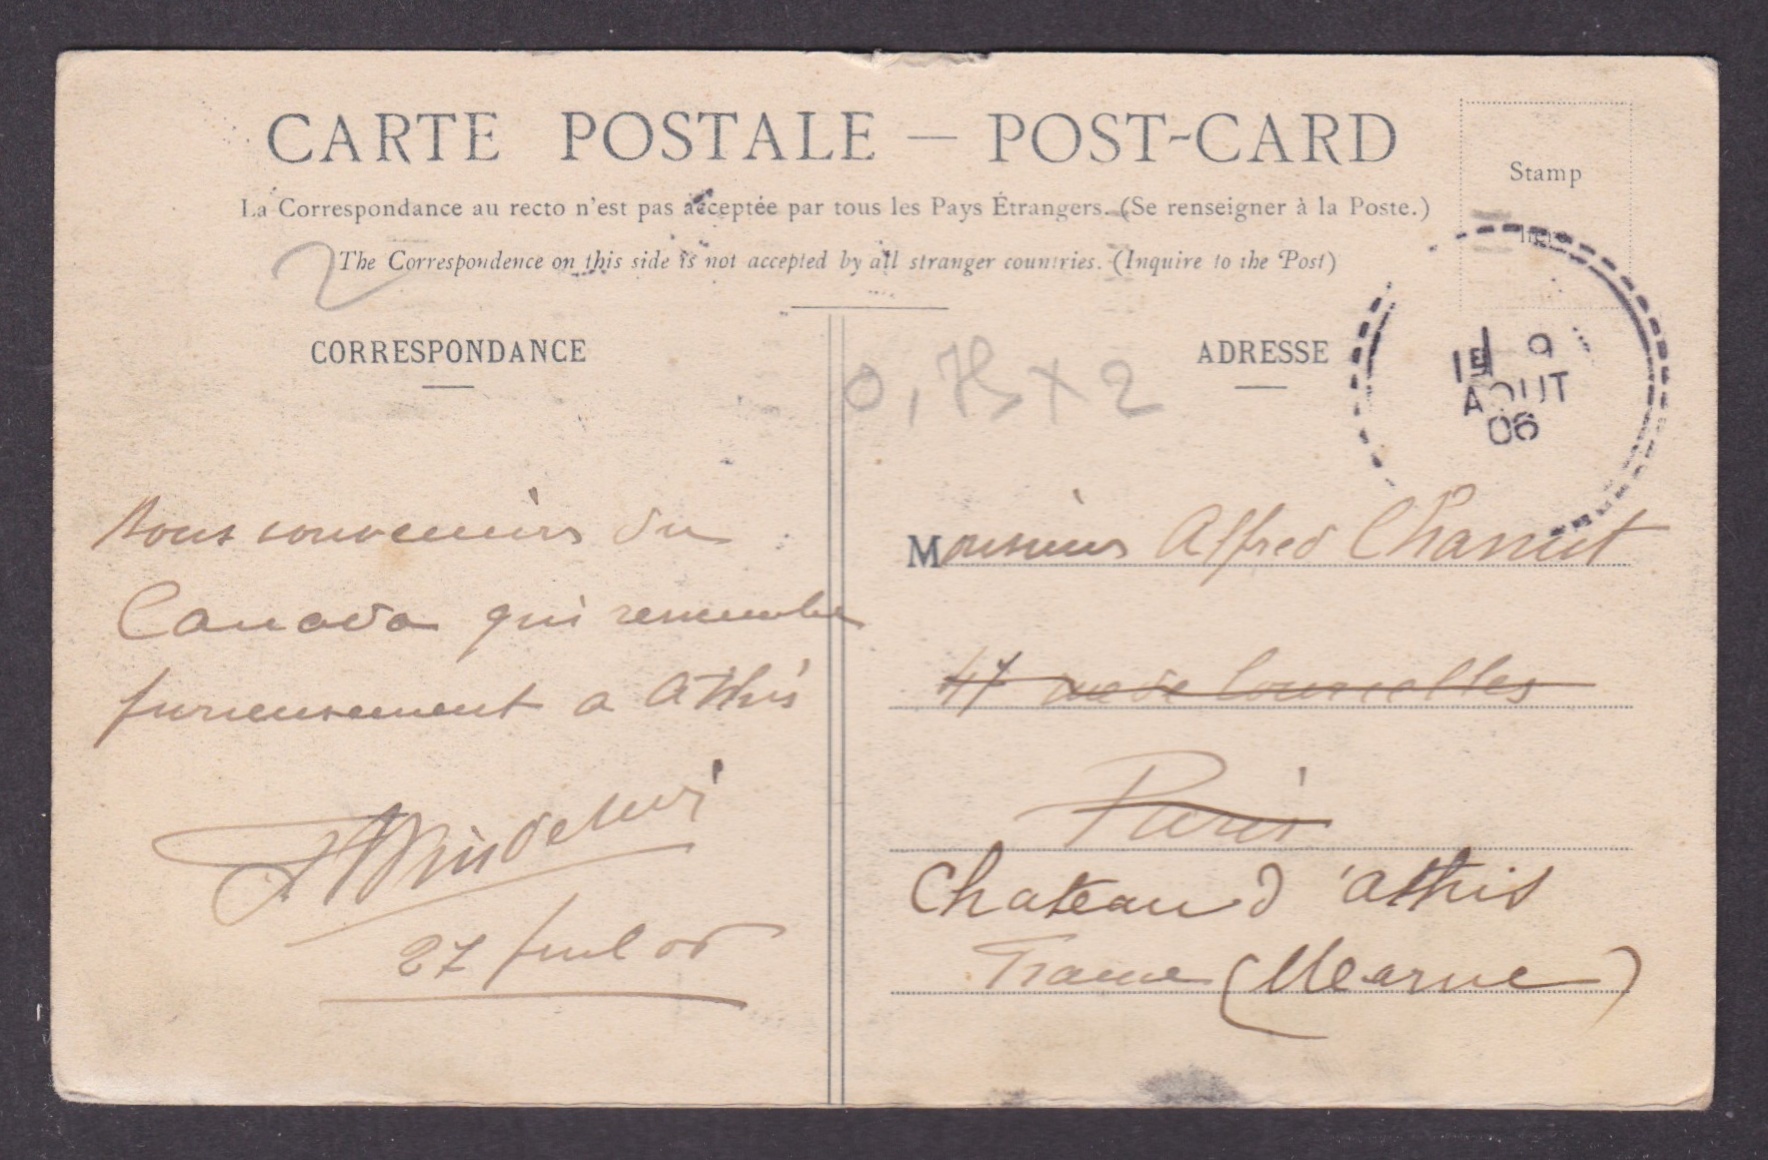 CARTE POSTALE — POST-CARD
La Correspondance au recto n'est pas acceptée par tous les Pays Étrangers. (Se renseigner à la Poste.)
The Correspondence on this side is not accepted by all stranger countries. (Inquire to the Post)
Stamp
CORRESPONDANCE
ADRESSE
0,75 x 2
2
9
AOUT
06
Bons souvenirs du
Canada qui ressemble
furieusement a Athis
27 juil 06
Monsieur Alfred
47 rue de Courcelles
Paris
Chateau d'Athis
France (Marne)